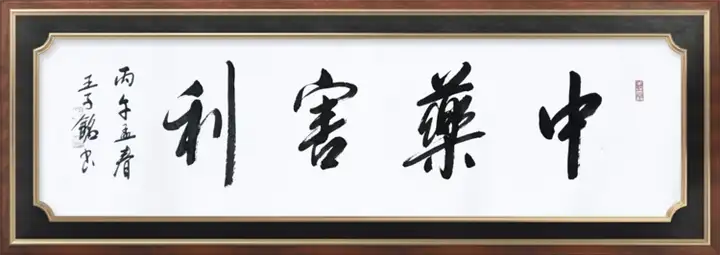 中藥害利
丙午孟春
王子銘書